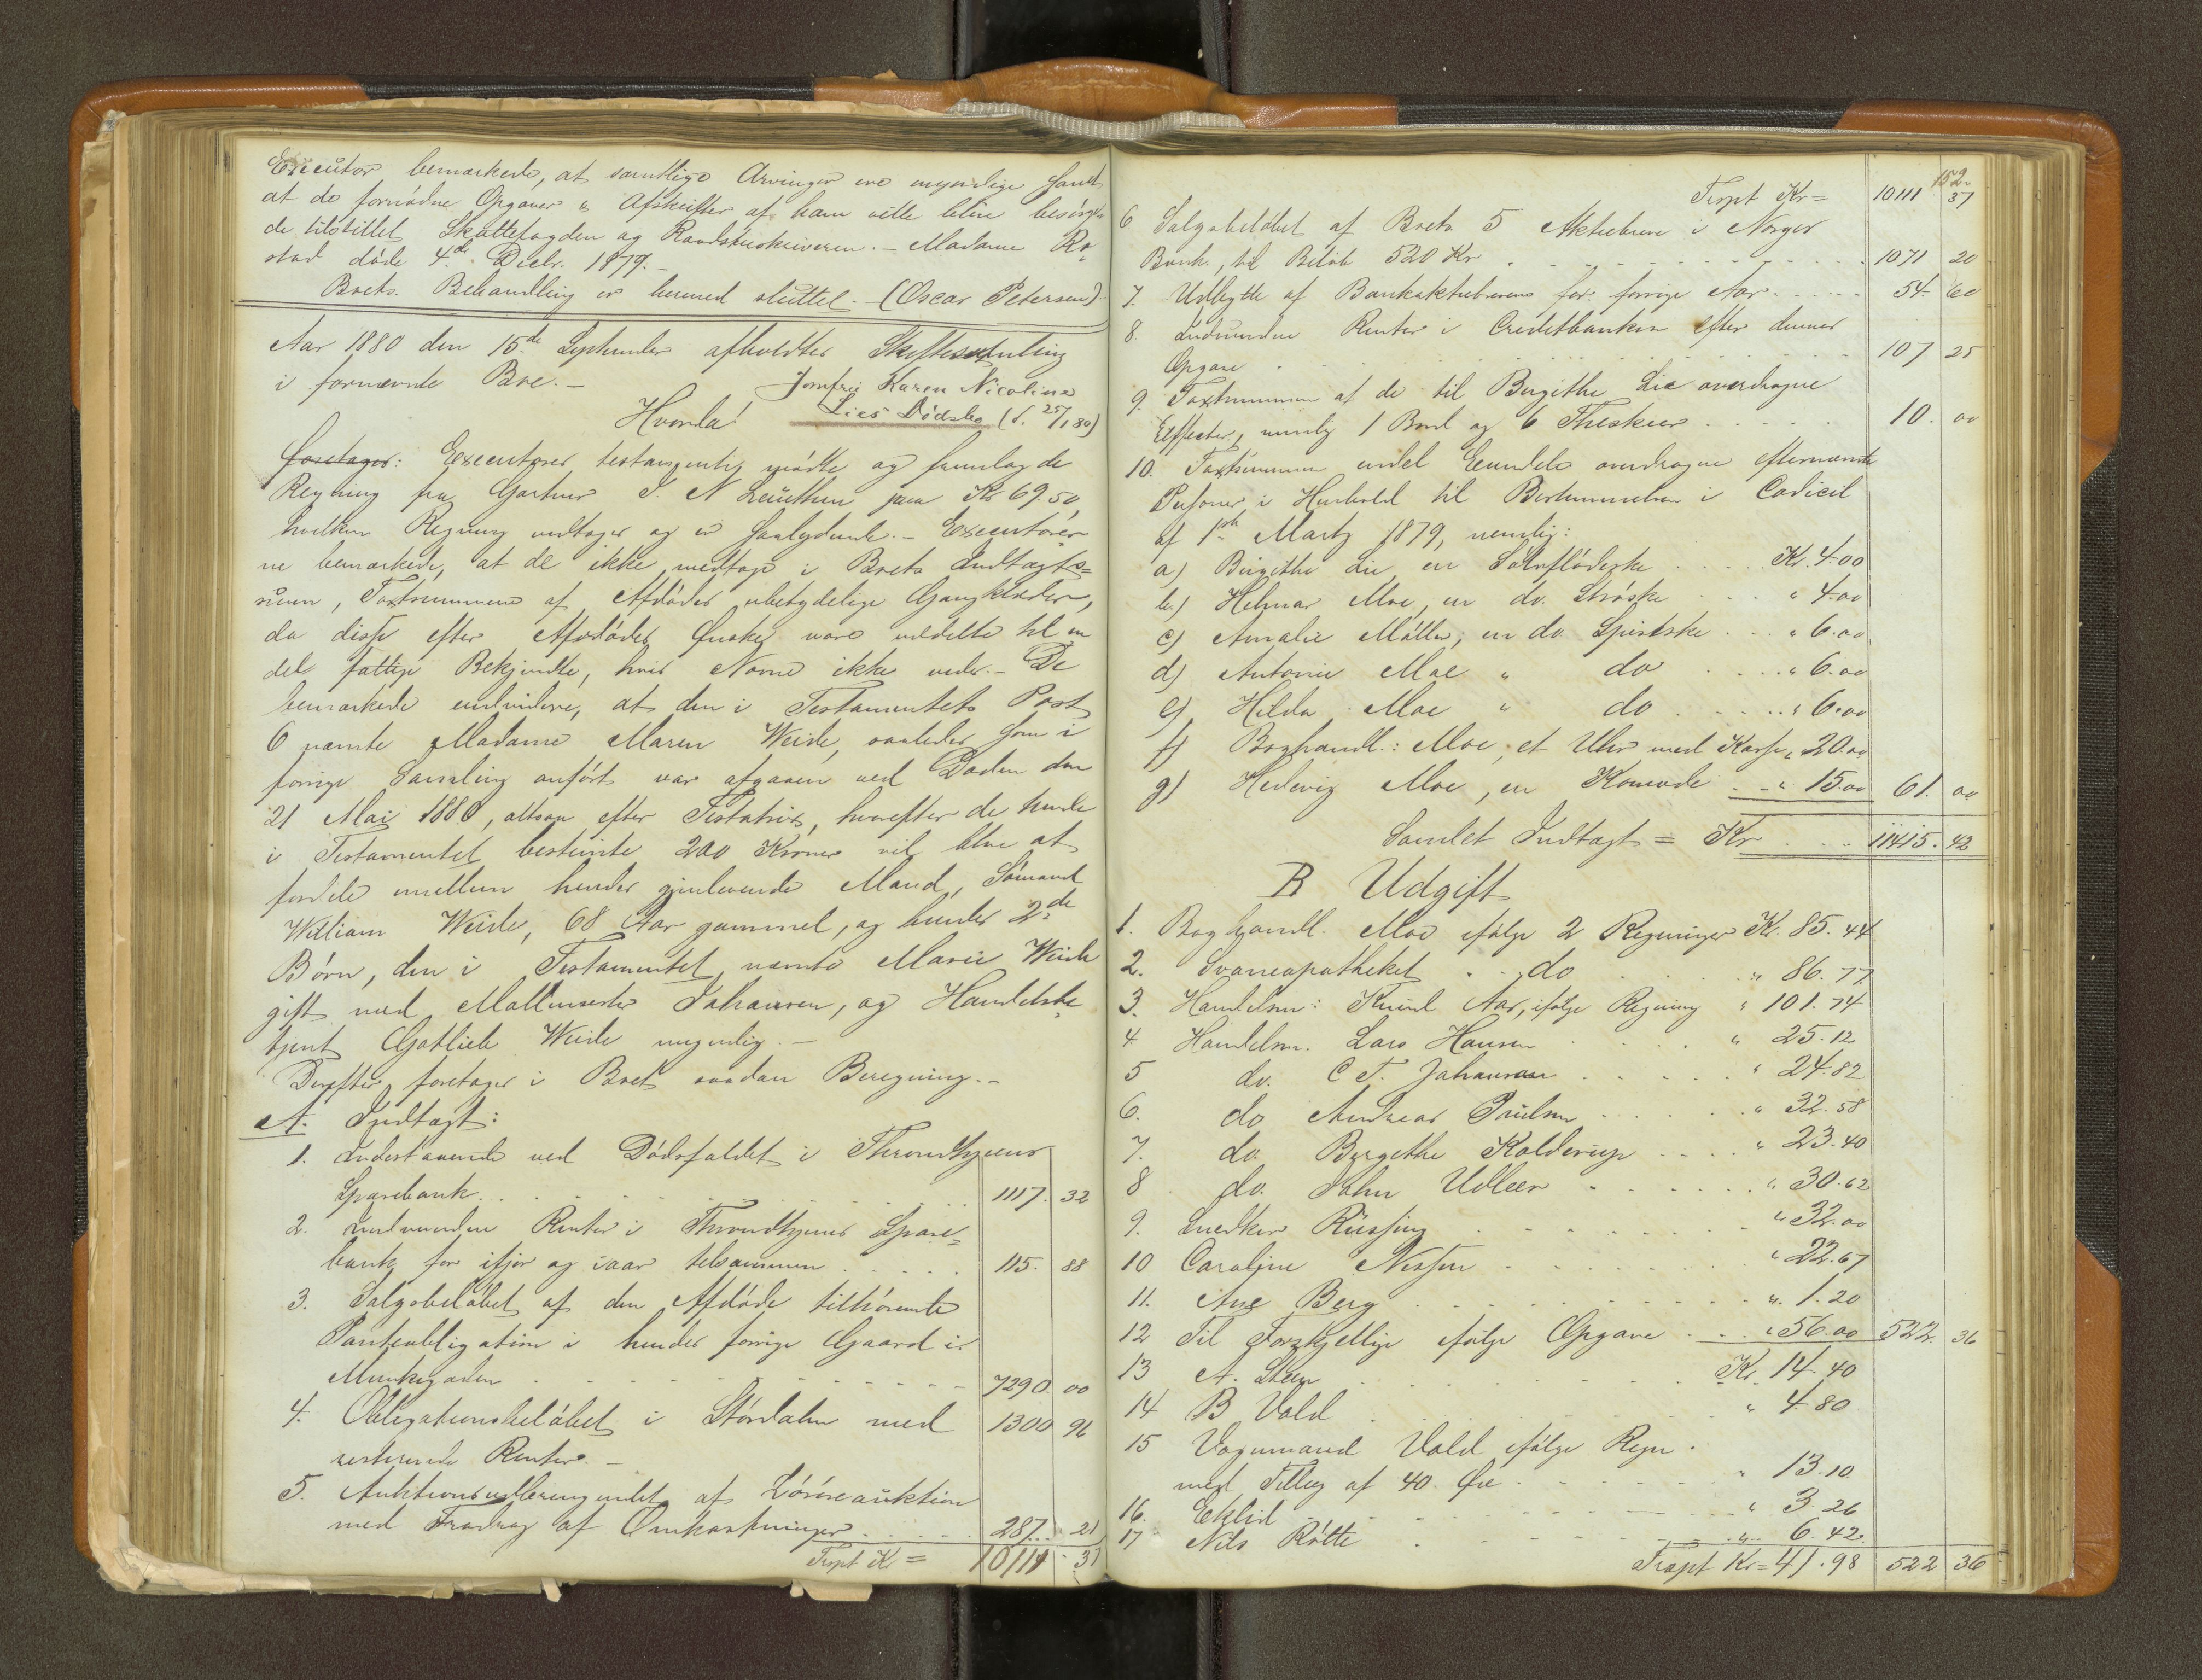 Executor bemærkede, at samtlige Arvinger ere myndige samt
at de fornødne Opgaver & Afskrifter af ham ville blive besørge-
de tilstillet Skattefogden og Raadstueskriveren. – Madame Ro-
stad døde 4de Decbr. 1879. –
Boets Behandling er hermed sluttet. – (Oscar Petersen).
Aar 1880 den 15de September afholdtes Skiftesamling
i fornævnte Boe. –
Jomfru Karen Nicoline
Lies Dødsbo (d. 25/1 80)
Hvorda!
foretages: Executores testamenti mødte og fremlagde
Regning fra Gartner J. N paa Kr 69.50,
hvilken Regning vedtages og er saalydende. – Executorer-
ne bemærkede, at de ikke medtage i Boets Indtægts-
sum, Taxtsummene af Afdødes ubetydelige Gangklæder,
da disse efter Afdødes Ønske vare uddelte til en
del fattige Bekjendte, hvis Navne ikke vides. – De
bemærkede endvidere, at den i Testamentets Post
6 nævnte Madame Maren Weide, saaledes som i
forrige Samling anført var afgaaen ved Døden den
21 Mai 1880, altsaa efter Testatrix, hvorefter de hende
i Testamentet bestemte 200 Kroner vil blive at
fordele mellem hendes gjenlevende Mand, Sømand
William Weide, 68 Aar gammel, og hendes 2de
Børn, den i Testamentet nævnte Marie Weide
gift med Johansen, og Handelsbe-
tjent Gotlieb Weide myndig. –
Derefter foretages i Boet saadan Beregning. –
A. Indtægt:
1. Indestaaende ved Dødsfaldet i Throndhjems
Sparebank . . . 1117. 32
2. Indvundne Renter i Throndhjems Spare-
bank for ifjor og iaar tilsammen . . . 115. 88
3. Salgsbeløbet af den Afdøde tilhørende
Panteobligation i hendes forrige Gaard i
Munkegaden . . . 7290. 00
4. Obligationsbeløbet i Stördalen med 1300 96
resterende Renter. –
5. Auktionsudbringendet af Løsøreauktion
med Fradrag af Omkostninger . . . 287. 21
Trspt Kr = 10111. 37
152.
Trspt Kr = 10111 37
6 Salgsbeløbet af Boets 5 Aktiebreve i Norges
Bank, til Beløb 520 Kr . . . 1071 20
7. Udbytte af Bankaktiebrevene for forrige Aar . . . 54. 60
8. Indvundne Renter i Creditbanken efter dennes
Opgave . . . 107 25
9. Taxtsummen af de til Birgithe Lie overdragne
Effecter, nemlig 1 Bord og 6 Theskeer . . . 10. 00
10. Taxtsummen endel Eiendele overdragne efternævnte
Personer i Henhold til Bestemmelsen i Codicil
af 1ste Marts 1879, nemlig:
a) Birgithe Lie, en Sølvflødeske . . Kr. 4.00
b.) Helmar Moe, en do. Strøske . . " 4.00
c) Amalie Møller, en do Spiseske . . " 6.00
d) Antonie Moe " do . . " 6.00
e) Hilda Moe " do . . " 6.00
f) Boghandl.: Moe, et Uhr med Kasse " 20.00
g) Hedevig Moe, en Komode . . " 15.00 61. 00
Samlet Indtægt = Kr . . 11415. 42
B Udgift
1. Boghandl. Moe ifølge 2 Regninger Kr. 85. 44
2. Svaneapotheket . . do . . " 86. 77
3. Handelsm: Knud Aas, ifølge Regning " 101. 74
4. Handelsm. Lars Hansen . . " 25. 12
5 do. C T. Johansen . . " 24. 82
6. do Andreas Paulsen . . " 32. 58
7. do Byrgethe Kolderup . . " 23. 40
8 do. John Udleer . . " 30. 62
9. Snedker Rüssing . . " 32. 00
10 Caroline Nissen . . " 22. 67
11. Ane Berg . . " 1. 20
12 Til Forskjellige ifølge Opgave . . " 56. 00 522. 36
13 A. Steen . . Kr. 14. 40
14 B Vold . . " 4 80
15 Vognmand Vold ifølge Regn.
med Tillæg af 40 Øre . . " 13. 10
16. Eklid . . " 3 26
17 Nils Røtte . . " 6. 42
Trspt Kr = 41. 98 522 36